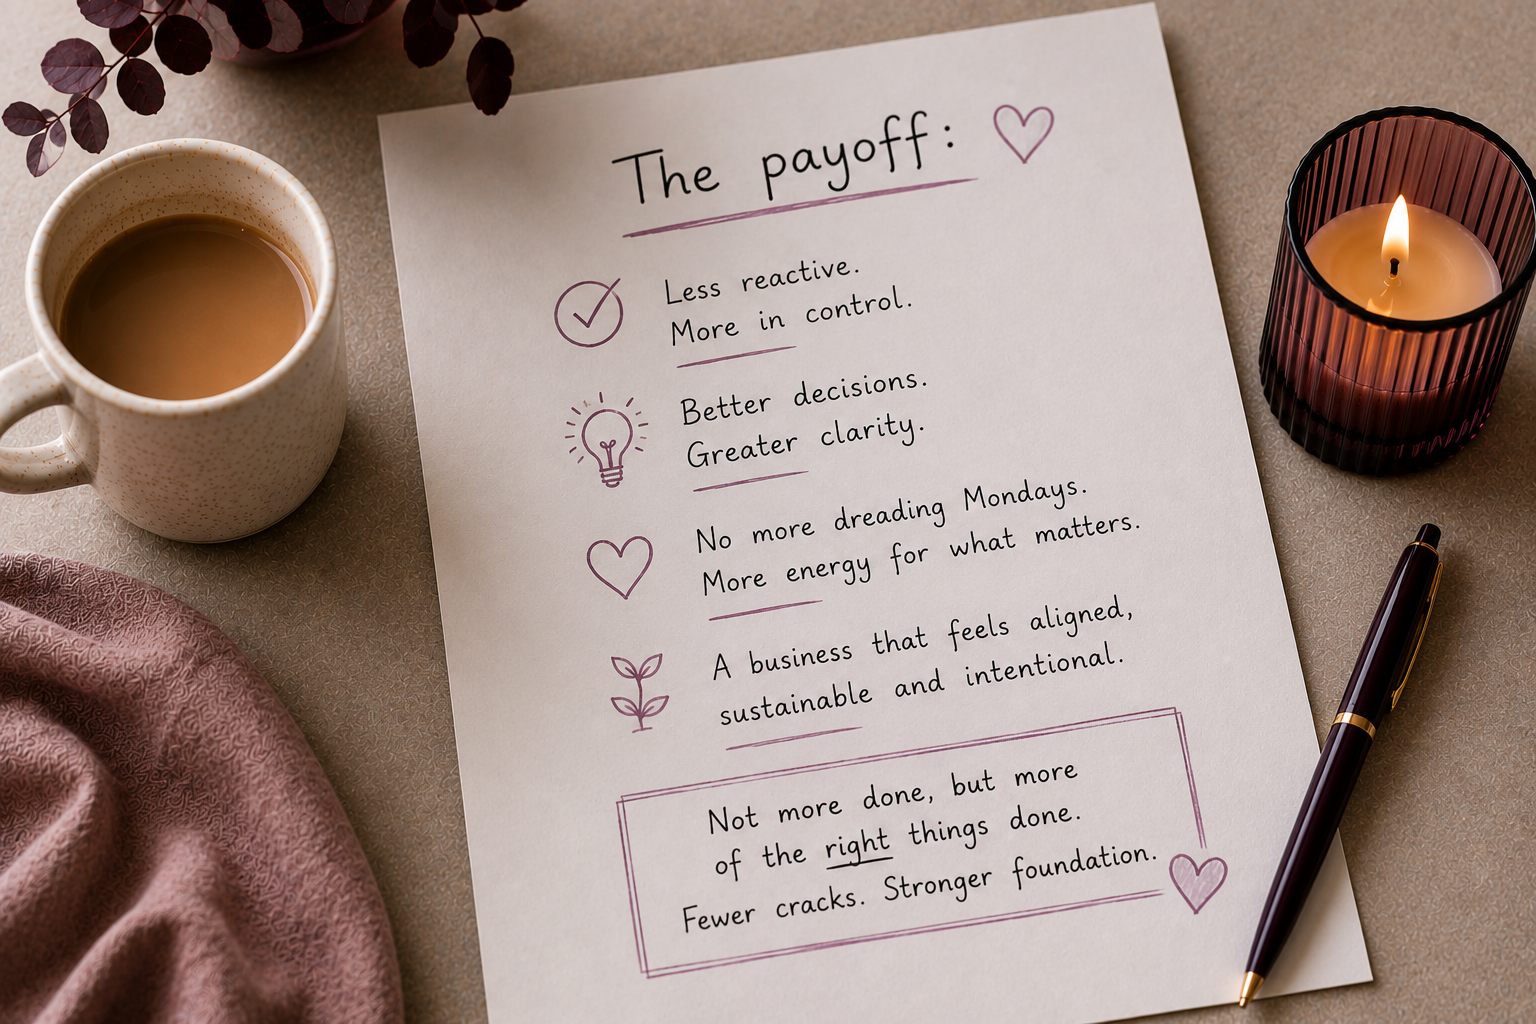 The payoff:
Less reactive.
More in control.
Better decisions.
Greater clarity.
No more dreading Mondays.
More energy for what matters.
A business that feels aligned,
sustainable and intentional.
Not more done, but more
of the right things done.
Fewer cracks. Stronger foundation.